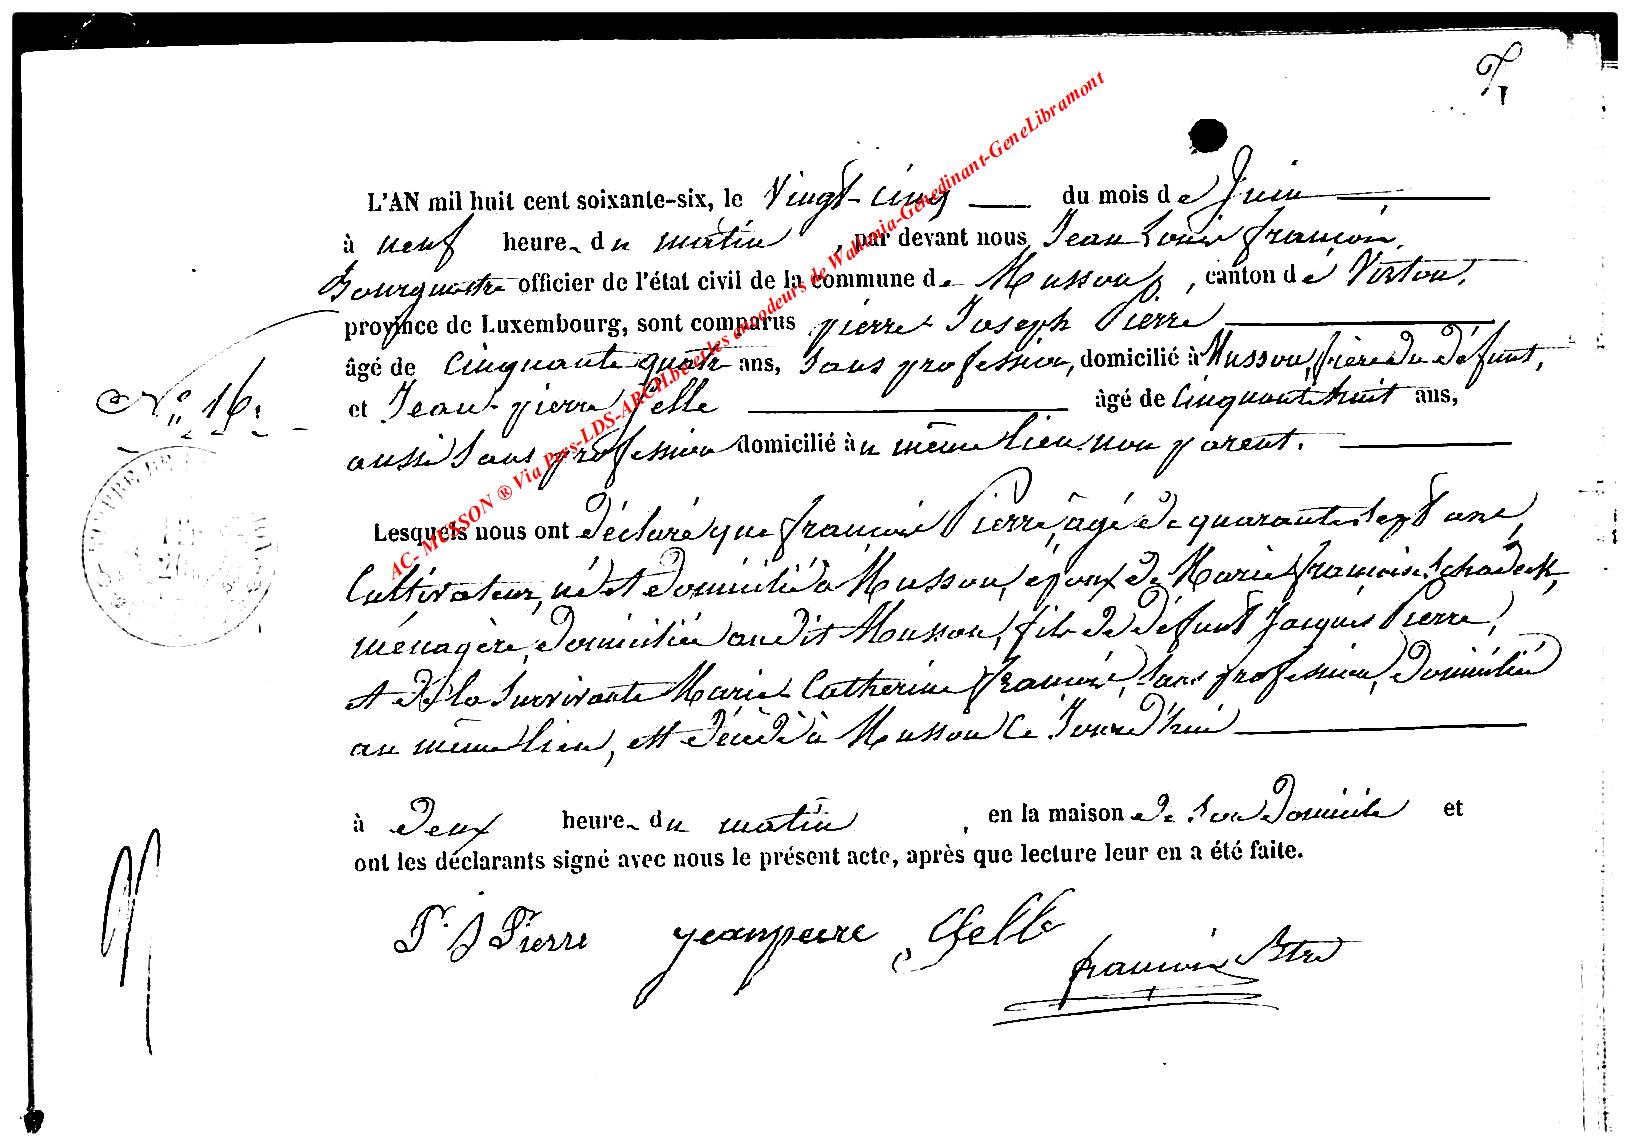 L'AN mil huit cent soixante-six, le Vingt-cinq du mois de Juin
à neuf heure du matin, par devant nous Jean Louis françois,
Bourgmestre officier de l'état civil de la commune de Musson, canton de Virton,
province de Luxembourg, sont comparus pierre Joseph Pierre
âgé de Cinquante quatre ans, Sans profession, domicilié à Musson, frère du défunt,
N° 16.
et Jean-pierre Gelle âgé de Cinquante huit ans,
aussi Sans profession domicilié au même lieu non parent.
Lesquels nous ont déclaré que françois Pierre, âgé de quarante sept ans,
Cultivateur, né et domicilié à Musson, époux de Marie françoise
ménagère, domiciliée au dit Musson, fils de défunt Jacques Pierre,
et de la Survivante Marie Catherine françois, Sans profession, domiciliée
au même lieu, est décédé à Musson ce Jourd'hui
à deux heure du matin, en la maison de Son domicile et
ont les déclarants signé avec nous le présent acte, après que lecture leur en a été faite.
P. J Pierre jeanpierre Gelle
françois Btre
AC- MUSSON ® Via Pers-LDS-ARCH.be et les encodeurs de Wallonia-Genedinant-GeneLibramont